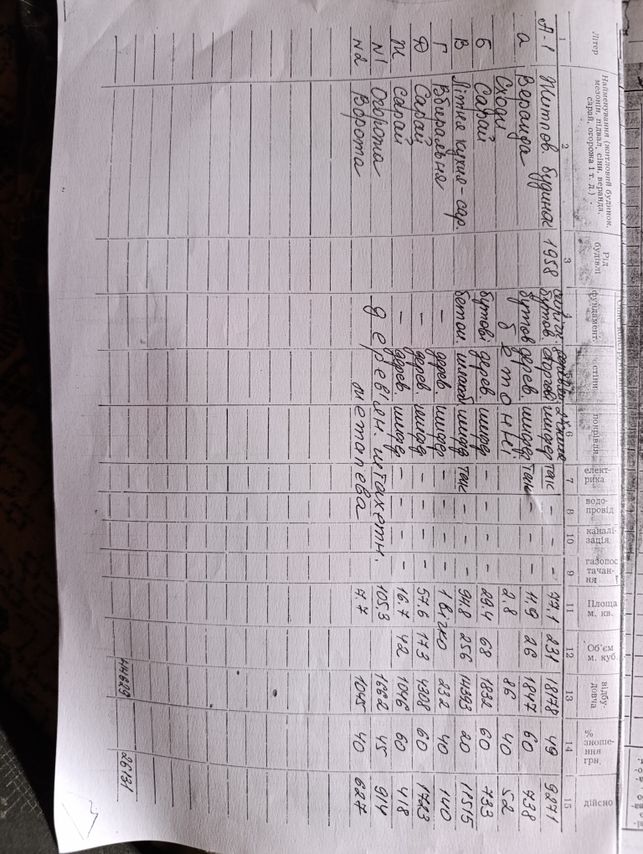 Літер | Найменування (житловий будинок, мезонін, підвал, сіни, веранда, сарай, огорожа і т. д.) | Рід будівлі | фундамент | стіни | покрівля | електрика | водопровід | каналізація | газопостачання | Площа м. кв. | Об'єм м. куб. | відбудовча | % зношення грн. | дійсно
1 | 2 | 3 | 6 | 7 | 8 | 10 | 9 | 11 | 12 | 13 | 14 | 15
А-1 | Житлов будинок | 1958 | бутов. | шифер | так | - | - | - | 77,1 | 231 | 18178 | 49 | 9271
а | Веранда | бутов | дерев | шифер | так | - | - | - | 11,9 | 26 | 1847 | 60 | 738
Сходи | бетонні | 2,8 | 86 | 40 | 52
Б | Сарай | бутові | дерев | шифер | - | - | - | - | 29,4 | 68 | 1832 | 60 | 733
В | Літня кухня-сар. | бетон. | шлакоб | шифер | так | - | - | - | 94,8 | 256 | 14393 | 20 | 11515
Г | Вбиральня | - | дерев. | шифер | - | - | - | - | 232 | 40 | 140
Д | Сарай | - | дерев. | шифер | - | - | - | - | 57,6 | 173 | 4308 | 60 | 1723
Ж | Сарай | - | дерев. | шифер | - | - | - | - | 16,7 | 42 | 1046 | 60 | 418
N1 | Огорожа | дерев'ян. штахетн. | 105,3 | 1662 | 45 | 914
N2 | Ворота | металева | 7,7 | 1045 | 40 | 627
44629 | 26131